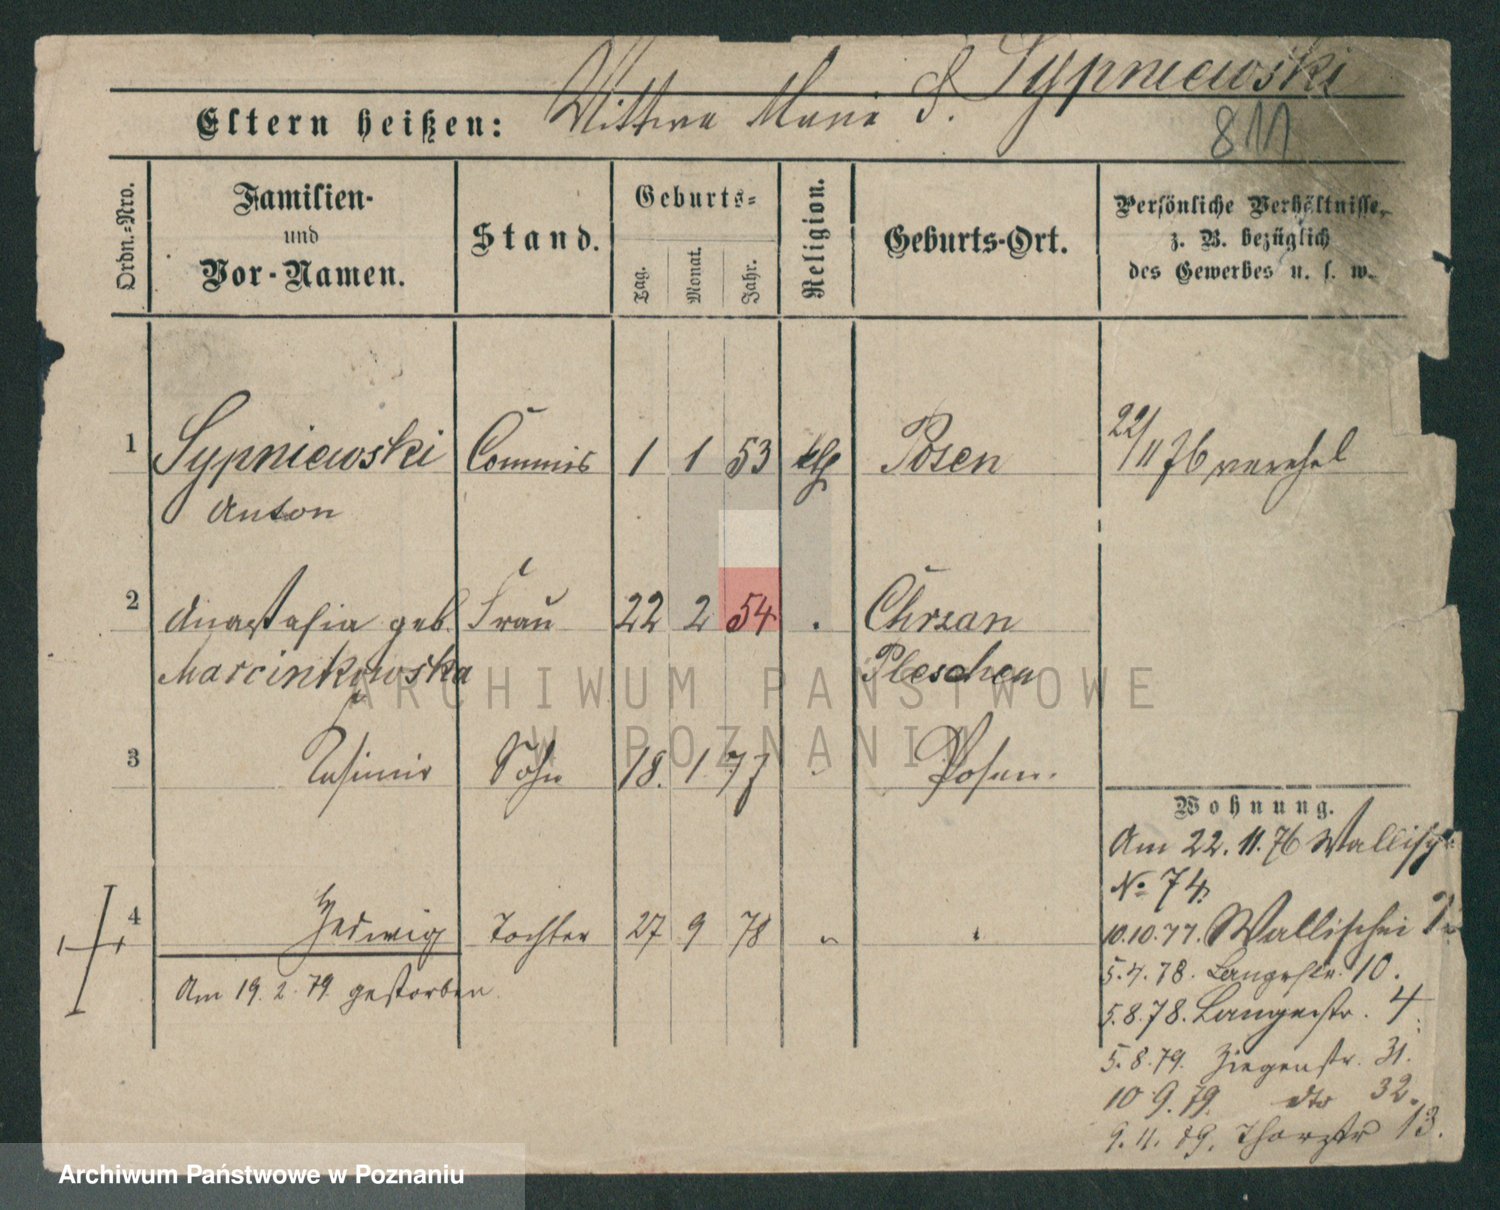 Eltern heißen: Wittwe Marie S. Sypniewski
811
Ordn.-Nro. Familien- und Vor-Namen. Stand. Geburts- Tag. Monat. Jahr. Religion. Geburts-Ort. Persönliche Verhältnisse, z. B. bezüglich des Gewerbes u. s. w.
1 Sypniewski Commis 1 1 53 kth Posen 22/11 76 verehel
Anton
2 Anastasia geb. Frau 22 2 54 Chrzan
Marcinkowska Pleschen
3 Kasimir Sohn 18. 1 77 " Posen.
4 Hedwig Tochter 27 9 78 " "
Am 19. 2. 79. gestorben
Wohnung.
Am 22. 11. 76 Wallisch
No 74.
10.10.77. Wallischei
5.4.78. Langestr. 10.
5.8.78. Langestr. 4
5.8.79. Ziegenstr. 31.
10 9. 79. dto 32.
9. 11. 79. Thorstr 13.
ARCHIWUM PAŃSTWOWE
W POZNANIU
Archiwum Państwowe w Poznaniu